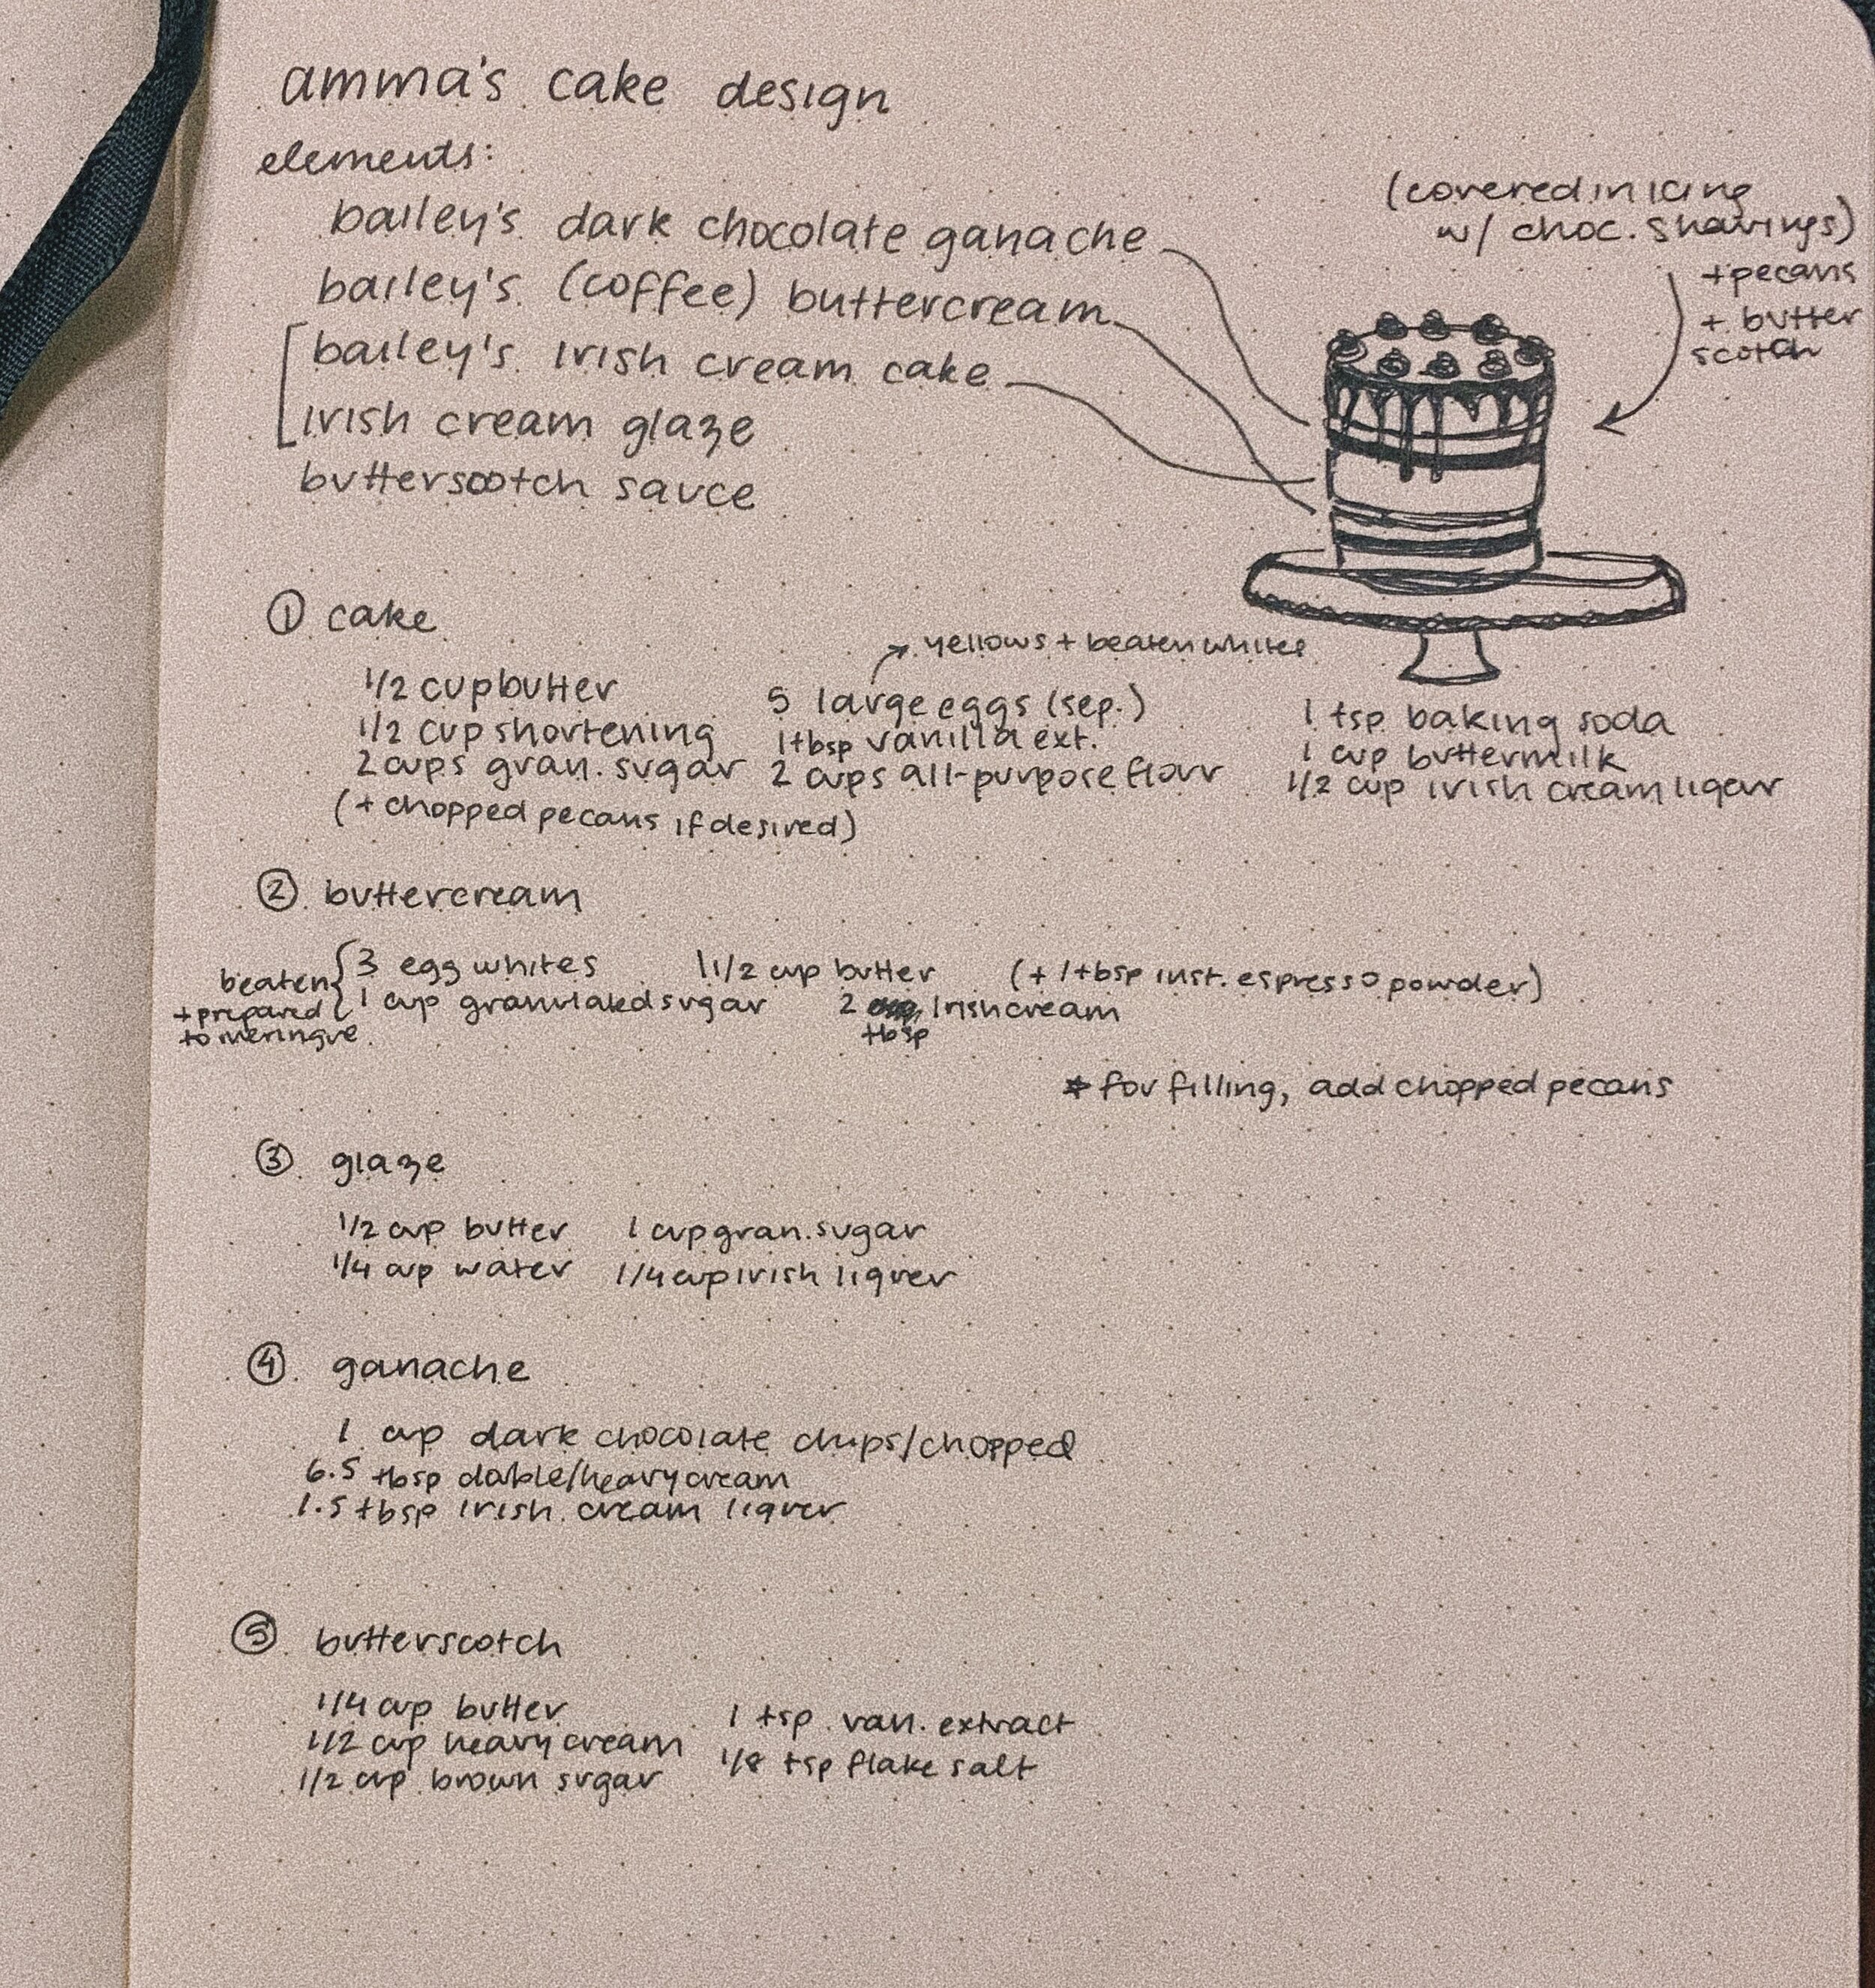 amma's cake design
elements:
bailey's dark chocolate ganache
bailey's (coffee) buttercream
bailey's irish cream cake
irish cream glaze
butterscotch sauce
(covered in icing
w/ choc. shavings)
+ pecans
+ butter
scotch
① cake
1/2 cup butter
1/2 cup shortening
2 cups gran. sugar
(+ chopped pecans if desired)
yellows + beaten whites
5 large eggs (sep.)
1 tbsp vanilla ext.
2 cups all-purpose flour
1 tsp baking soda
1 cup buttermilk
1/2 cup irish cream liqeur
② buttercream
beaten
+ prepared
to meringue
3 egg whites
1 cup granulated sugar
1 1/2 cup butter
2 Irish cream
tbsp
(+ 1 tbsp inst. espresso powder)
* for filling, add chopped pecans
③ glaze
1/2 cup butter
1/4 cup water
1 cup gran. sugar
1/4 cup irish liquer
④ ganache
1 cup dark chocolate chips/chopped
6.5 tbsp double/heavy cream
1.5 tbsp irish cream liquer
⑤ butterscotch
1/4 cup butter
1/2 cup heavy cream
1/2 cup brown sugar
1 tsp van. extract
1/8 tsp flake salt